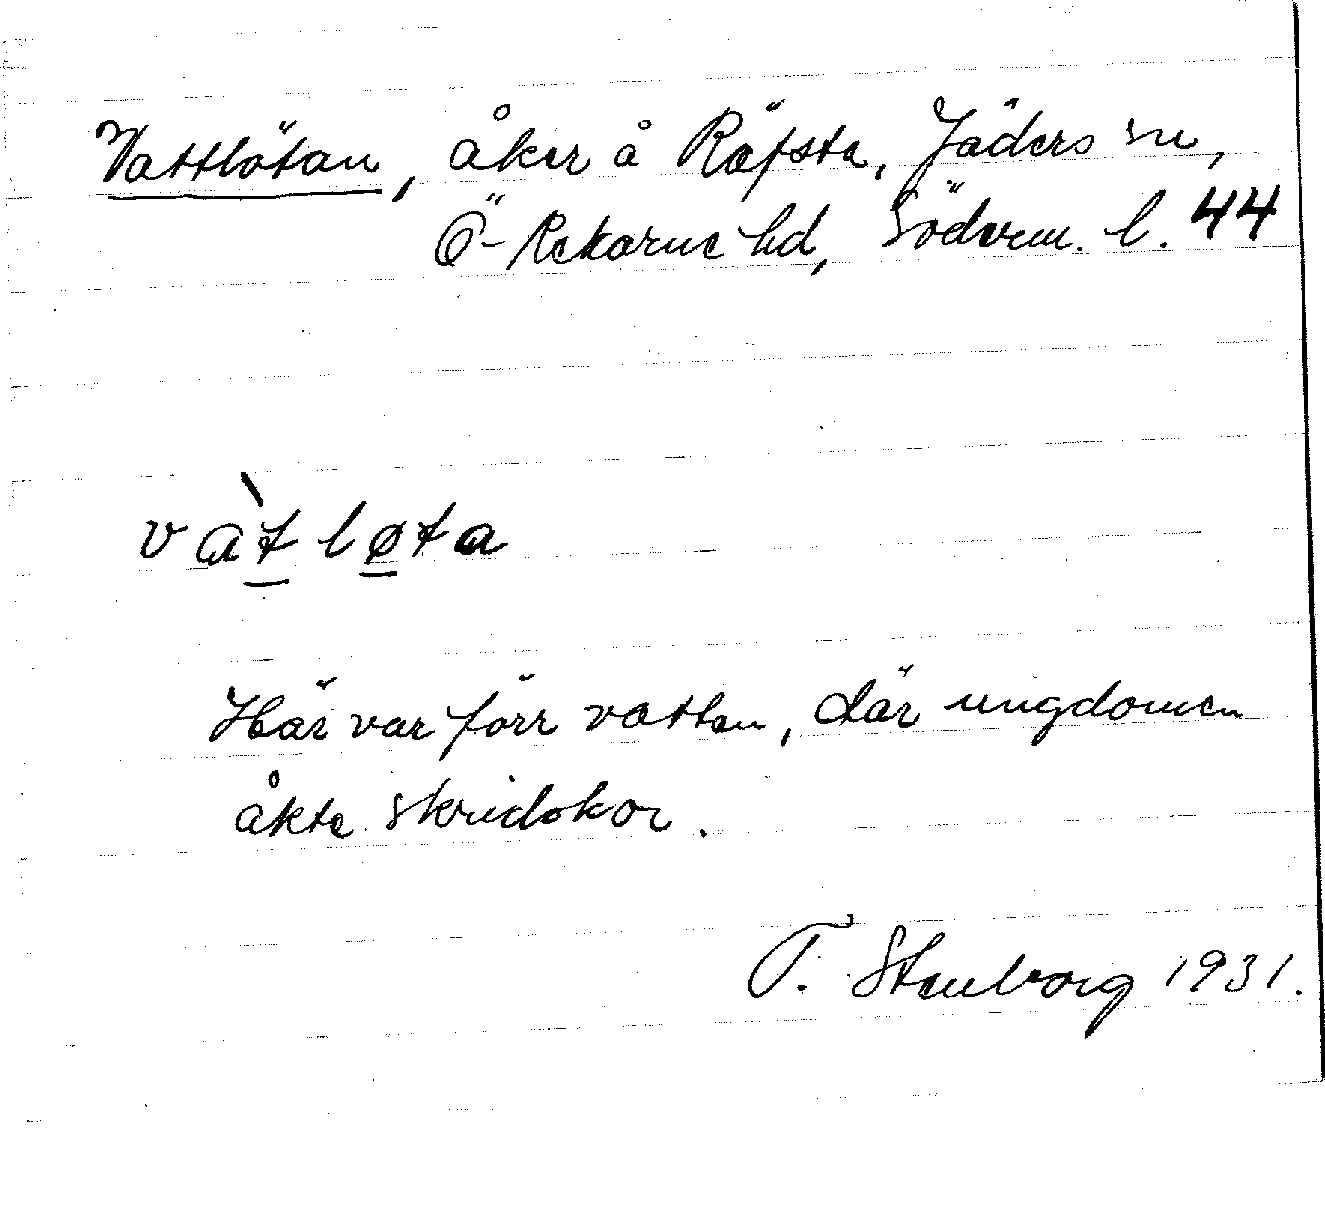 Vattlötan, åker å Räfsta, Jäders sn,
Ö-Rekarne hd, Söderm. l. 44
vàtløta
Här var förr vatten, där ungdomen
åkte skridskor.
T. Stenborg 1931.